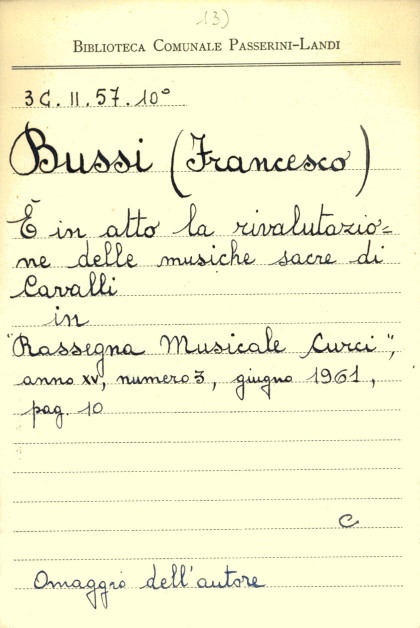 13)
BIBLIOTECA COMUNALE PASSERINI-LANDI
3C.II.57.10°
Bussi (Francesco)
È in atto la rivalutazio=
ne delle musiche sacre di
Cavalli
in
"Rassegna Musicale Curci",
anno XV, numero 3, giugno 1961,
pag. 10
C
Omaggio dell'autore